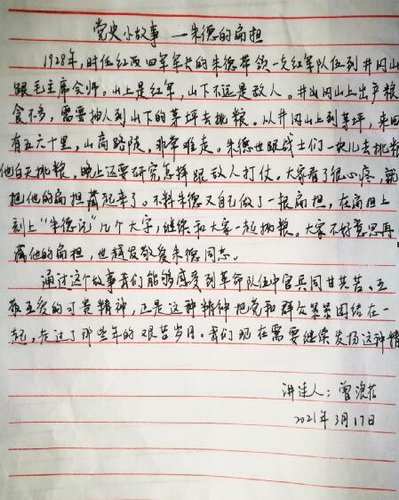 党史小故事 —朱德的扁担
1928年,时任红四军军长的朱德带领一支红军队伍到井冈山
跟毛主席会师。山上是红军,山下不远是敌人。井冈山上出产粮
食不多,需要抽人到山下的茅坪去挑粮。从井冈山上到茅坪,来回
有五六十里,山高路陡,非常难走。朱德也跟战士们一块儿去挑粮
他白天挑粮,晚上还要研究怎样跟敌人打仗。大家看了很心疼,就
把他的扁担藏起来了。不料朱德又自己做了一根扁担,在扁担上
刻上"朱德记"几个大字,继续和大家一起挑粮。大家不好意思再
藏他的扁担,也越发敬爱朱德同志。
通过这个故事我们能够感受到革命队伍中官兵同甘共苦、互
敬互爱的可贵精神,正是这种精神把党和群众紧紧团结在一
起,走过了那些年的艰苦岁月。我们现在需要继续发扬这种精
讲述人:曾浪
2021年3月17日